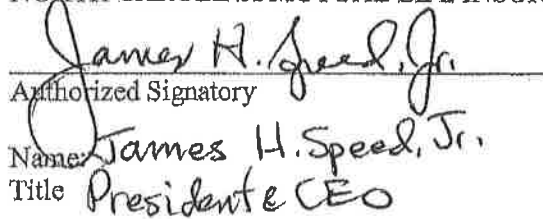 James H. Speed, Jr.
Authorized Signatory
Name: James H. Speed, Jr.
Title President & CEO